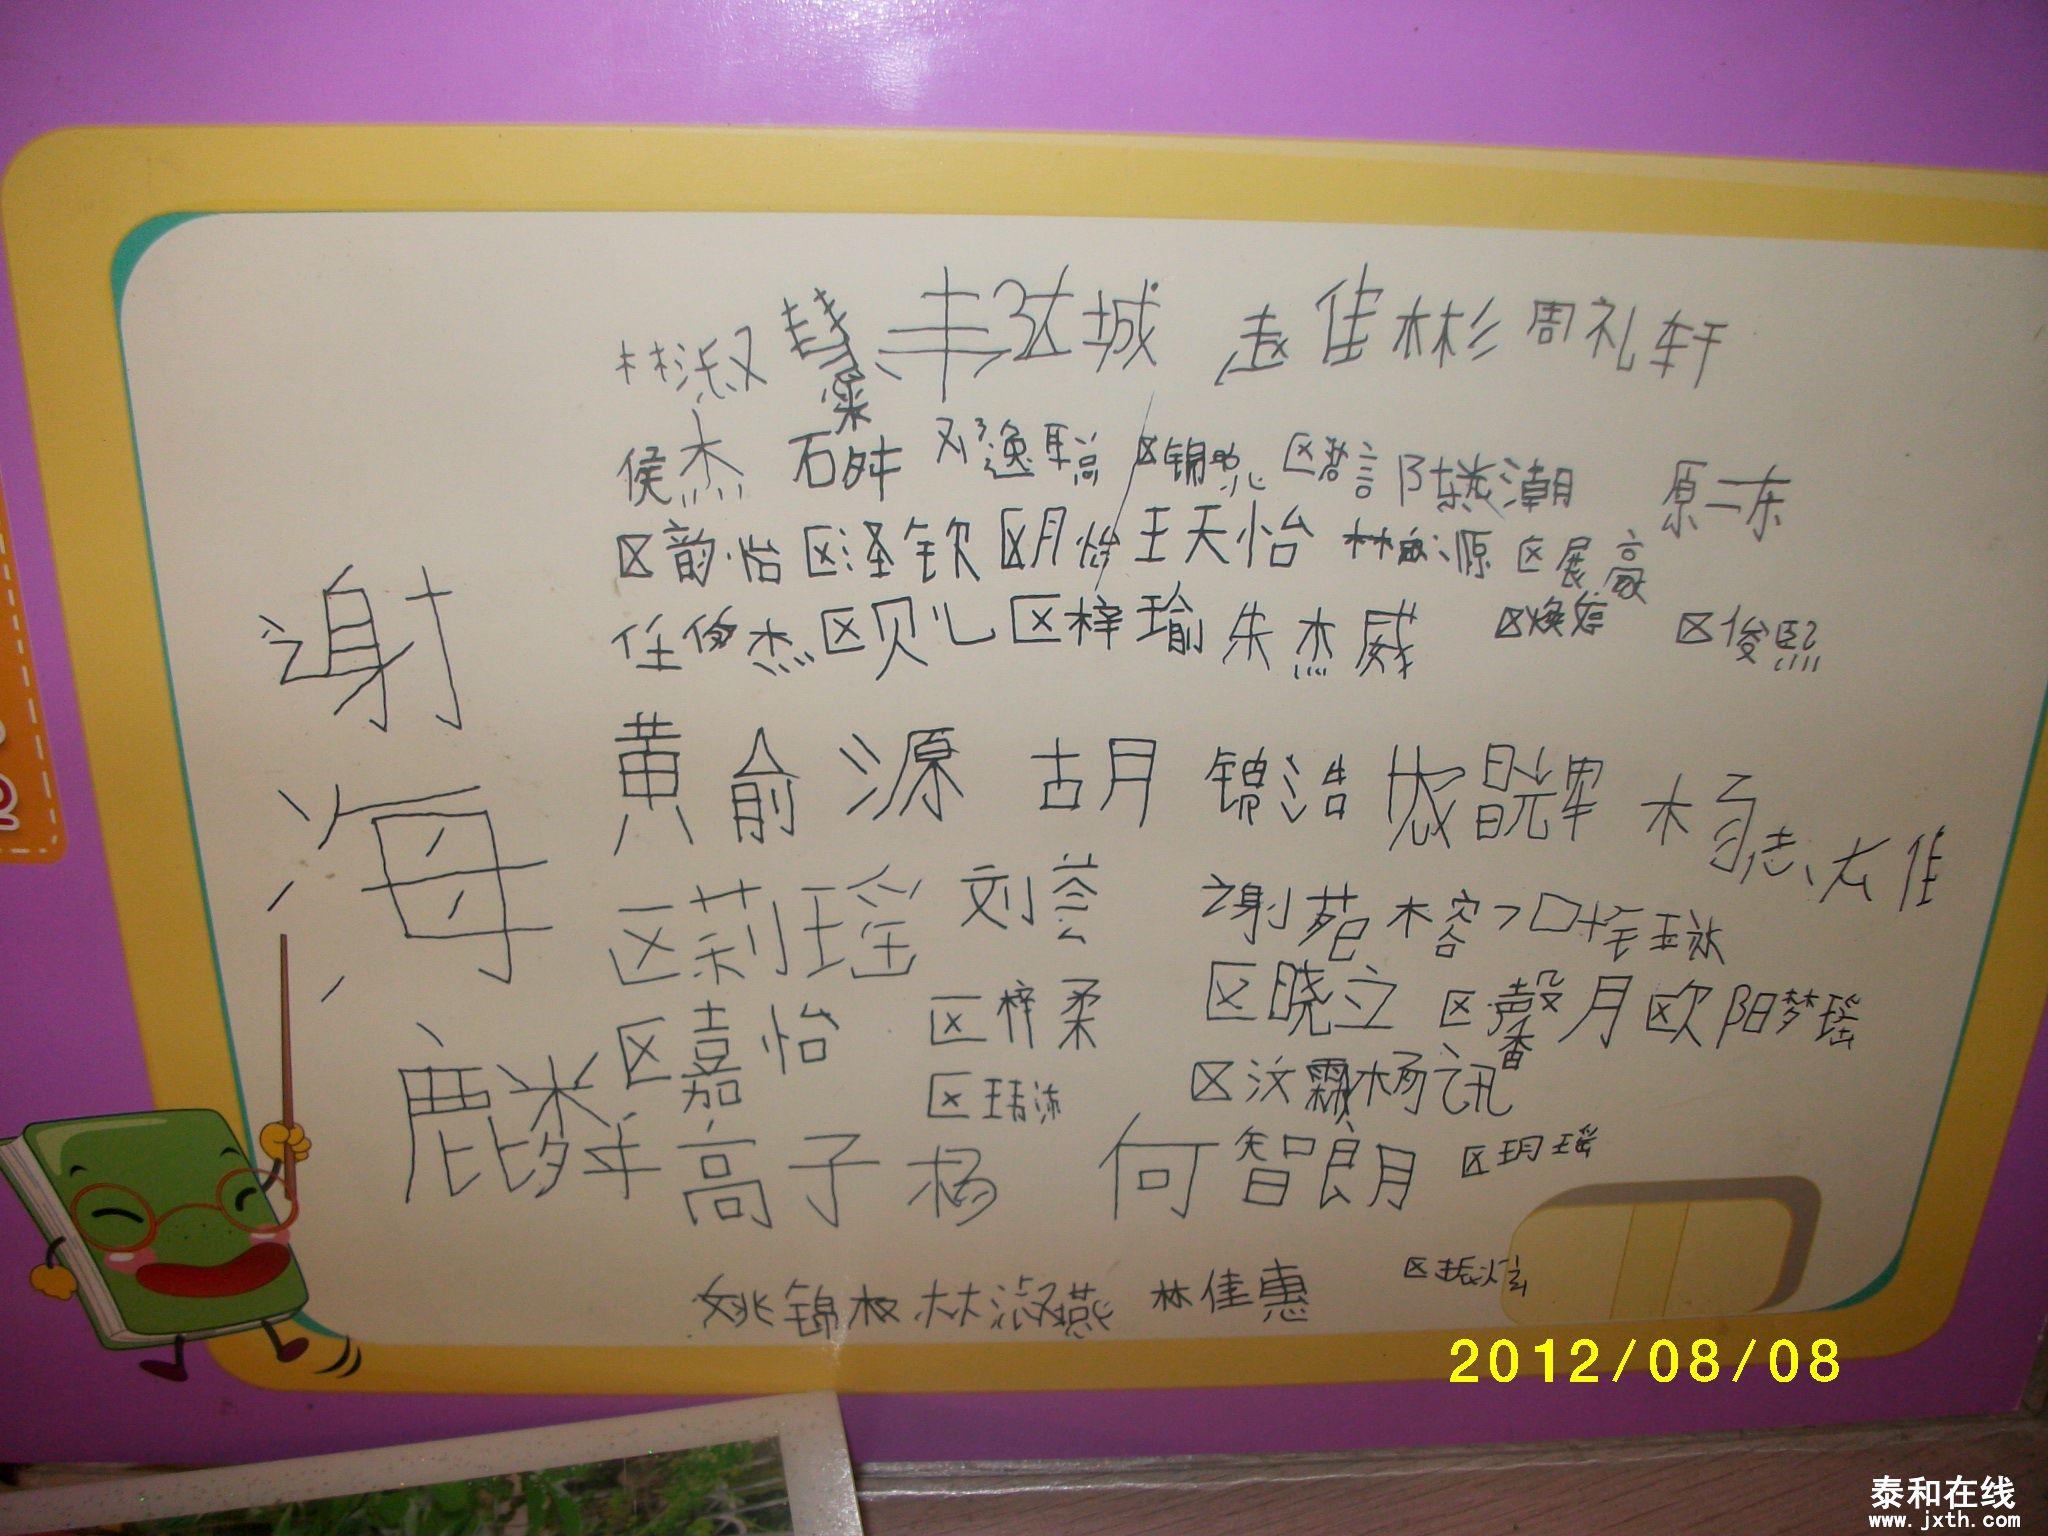 谢海麟
林淑 赵佳彬 周礼轩
侯杰 石 邓逸聪 区锦 区 陈潮 原二东
区韵怡 区泽钦 区月怡 王天怡 林源 区展豪
任俊杰 区贝儿 区梓瑜 朱杰威 区焕婷 区俊熙
黄俞源 胡月 锦浩 杨志佳
区莉瑶 刘荟 谢苑榕
区嘉怡 区梓柔 区晓立 区馨月 欧阳梦瑶
区 区汶霖 杨讯
高子杨 何智朗 区玥瑶
姚锦权 林淑燕 林佳惠 区振
2012/08/08
泰和在线
www.jxth.com